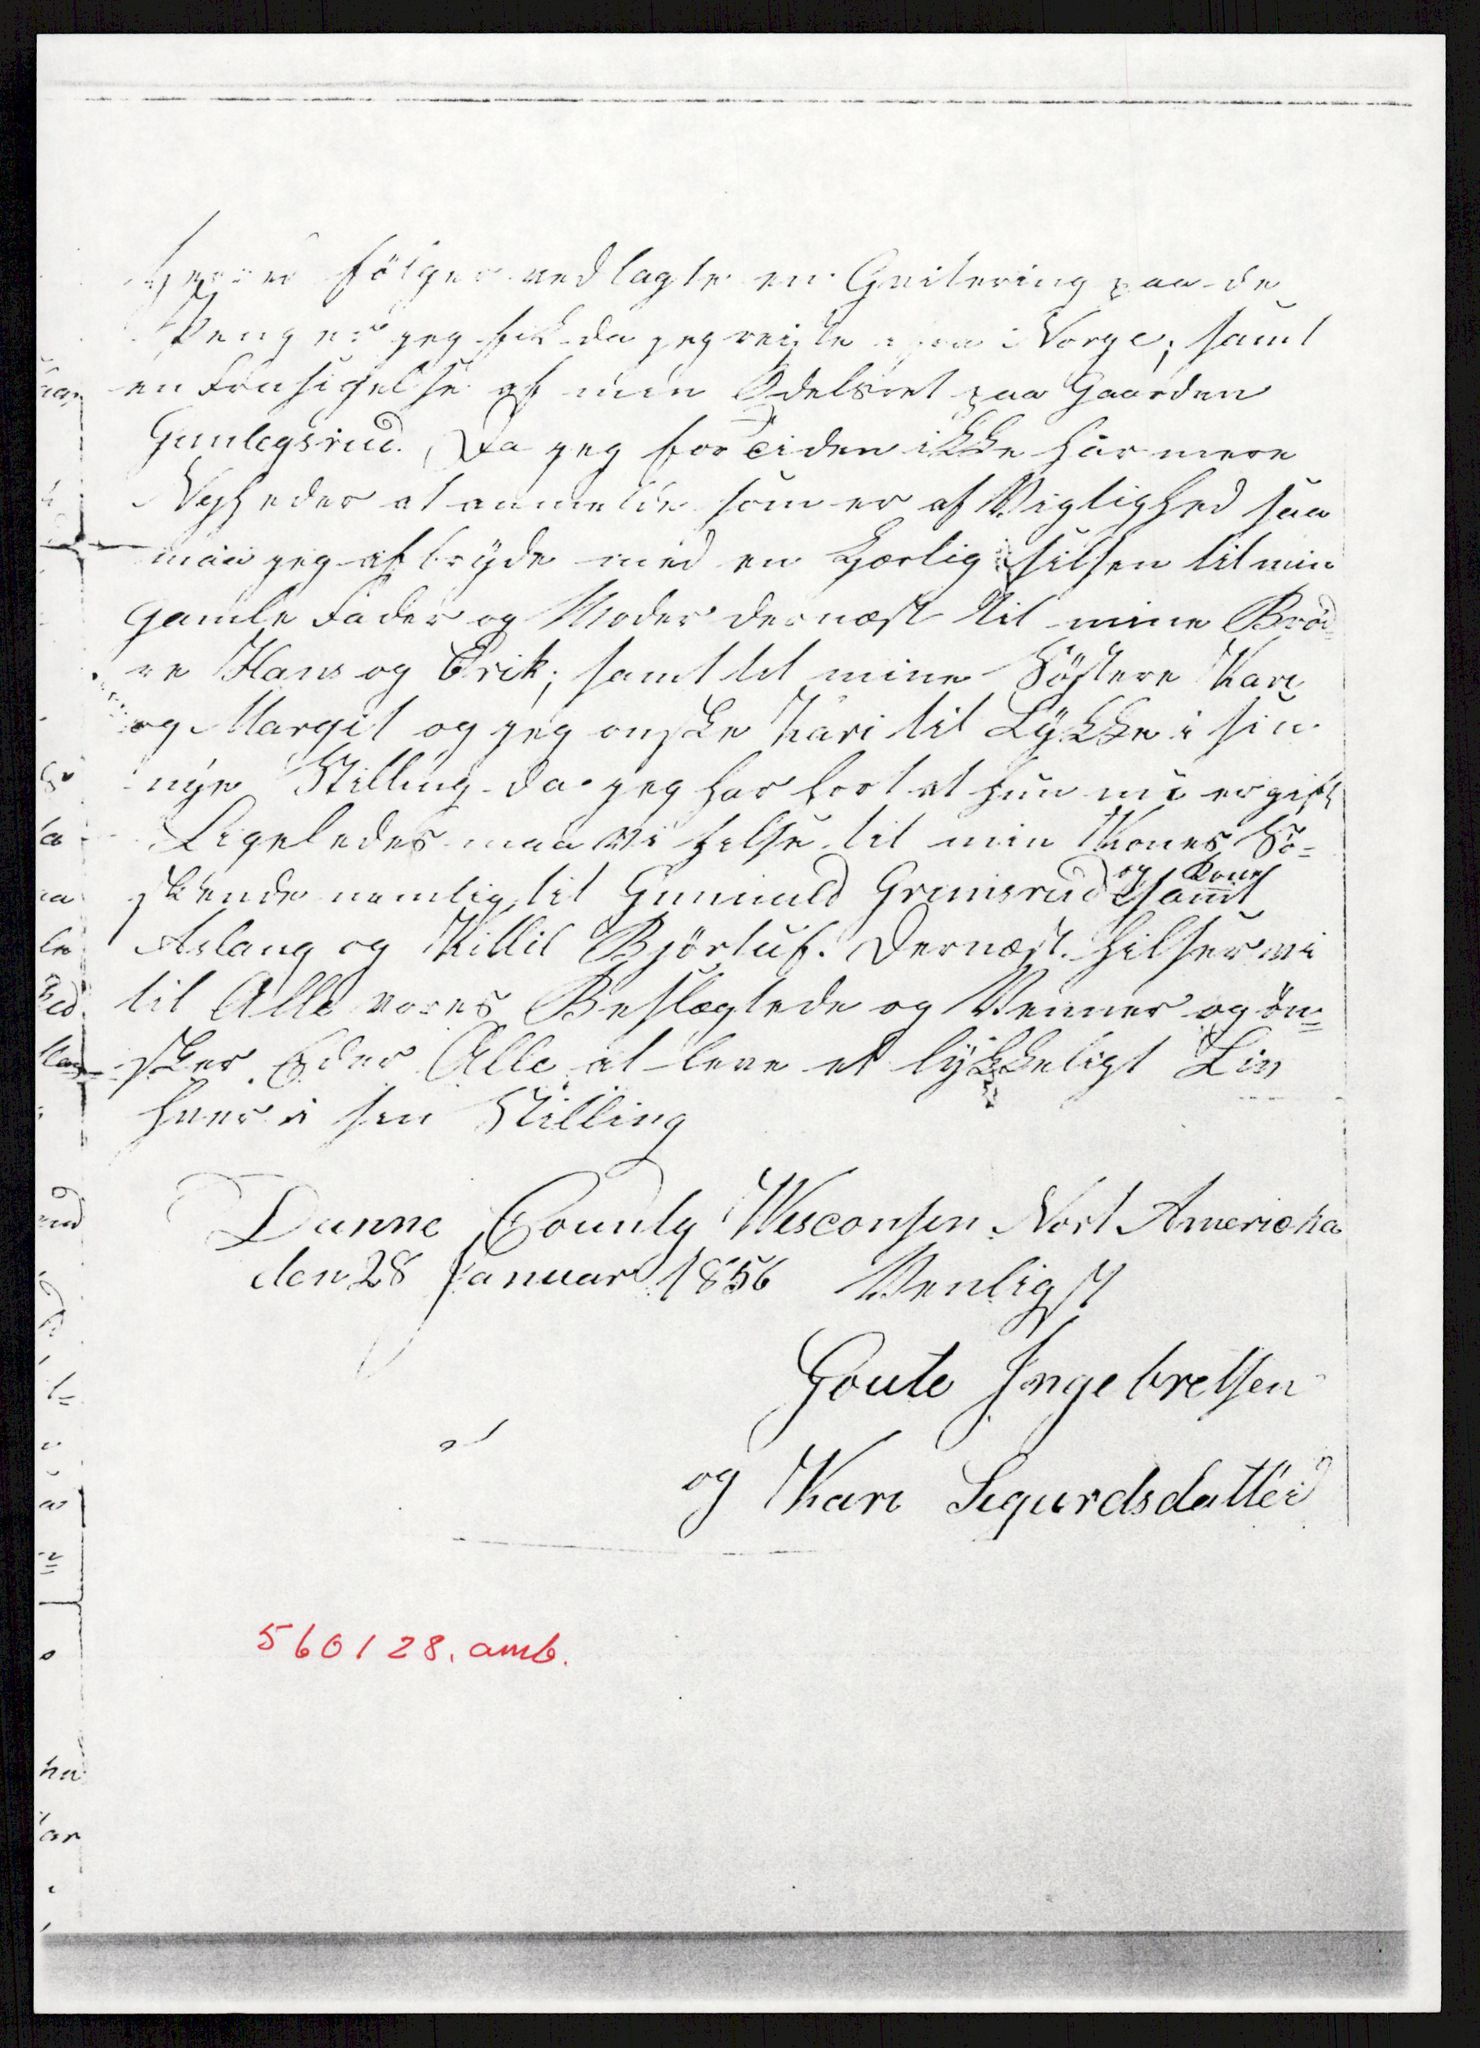 følger vedlagte en Qvitering paa de
Penger jeg fik da jeg reiste ifra Norge; samt
en Frasigelse af min Odelsret paa Gaarden
Gunlegsrud. Da jeg for Tiden ikke har mere
Nyheder at anmelde som er af Vigtighed saa
maa jeg afbryde med en kjærlig hilsen til min
gamle Fader og Moder dernæst til mine Brød=
re Hans og Erik; samt til mine Søstere Kari
og Margit og jeg ønske Kari til Lykke i sin
nye Stilling da jeg har hørt at hun nu er gift
Ligeledes maa vi helse til min Kones Sø=
skende nemlig til Gunnuld Grimsrud og Kone samt
Aslaug og Killil Bjørtuf. Dernæst hilser vi
til Alle vores Beslægtede og Venner og øn=
sker Eder Alle at leve et lykkeligt Liv
hver i sin Stilling
Danne County Wisconsen Nort Americka
den 28 Januar 1856 Venligst
Goute Ingebretsen
og Kari Sigurdsdatter
560128.amb.